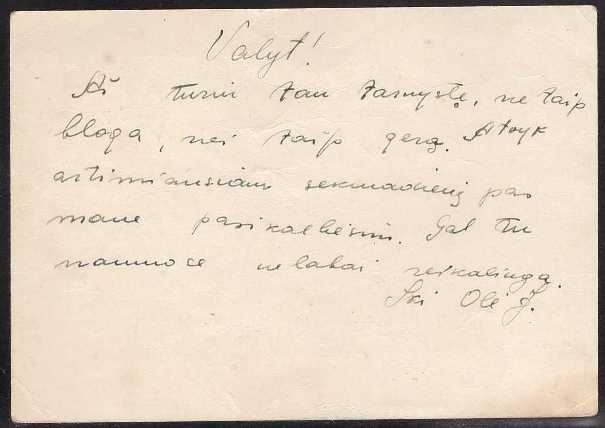 Valyt!
Aš turiu tau tarnystę, ne taip
bloga, nei taip gerą. Atvyk
artimiausiam sekmadienį pas
mane pasikalbėsim. Gal tu
namuose nelabai reikalinga.
Iki Olė J.